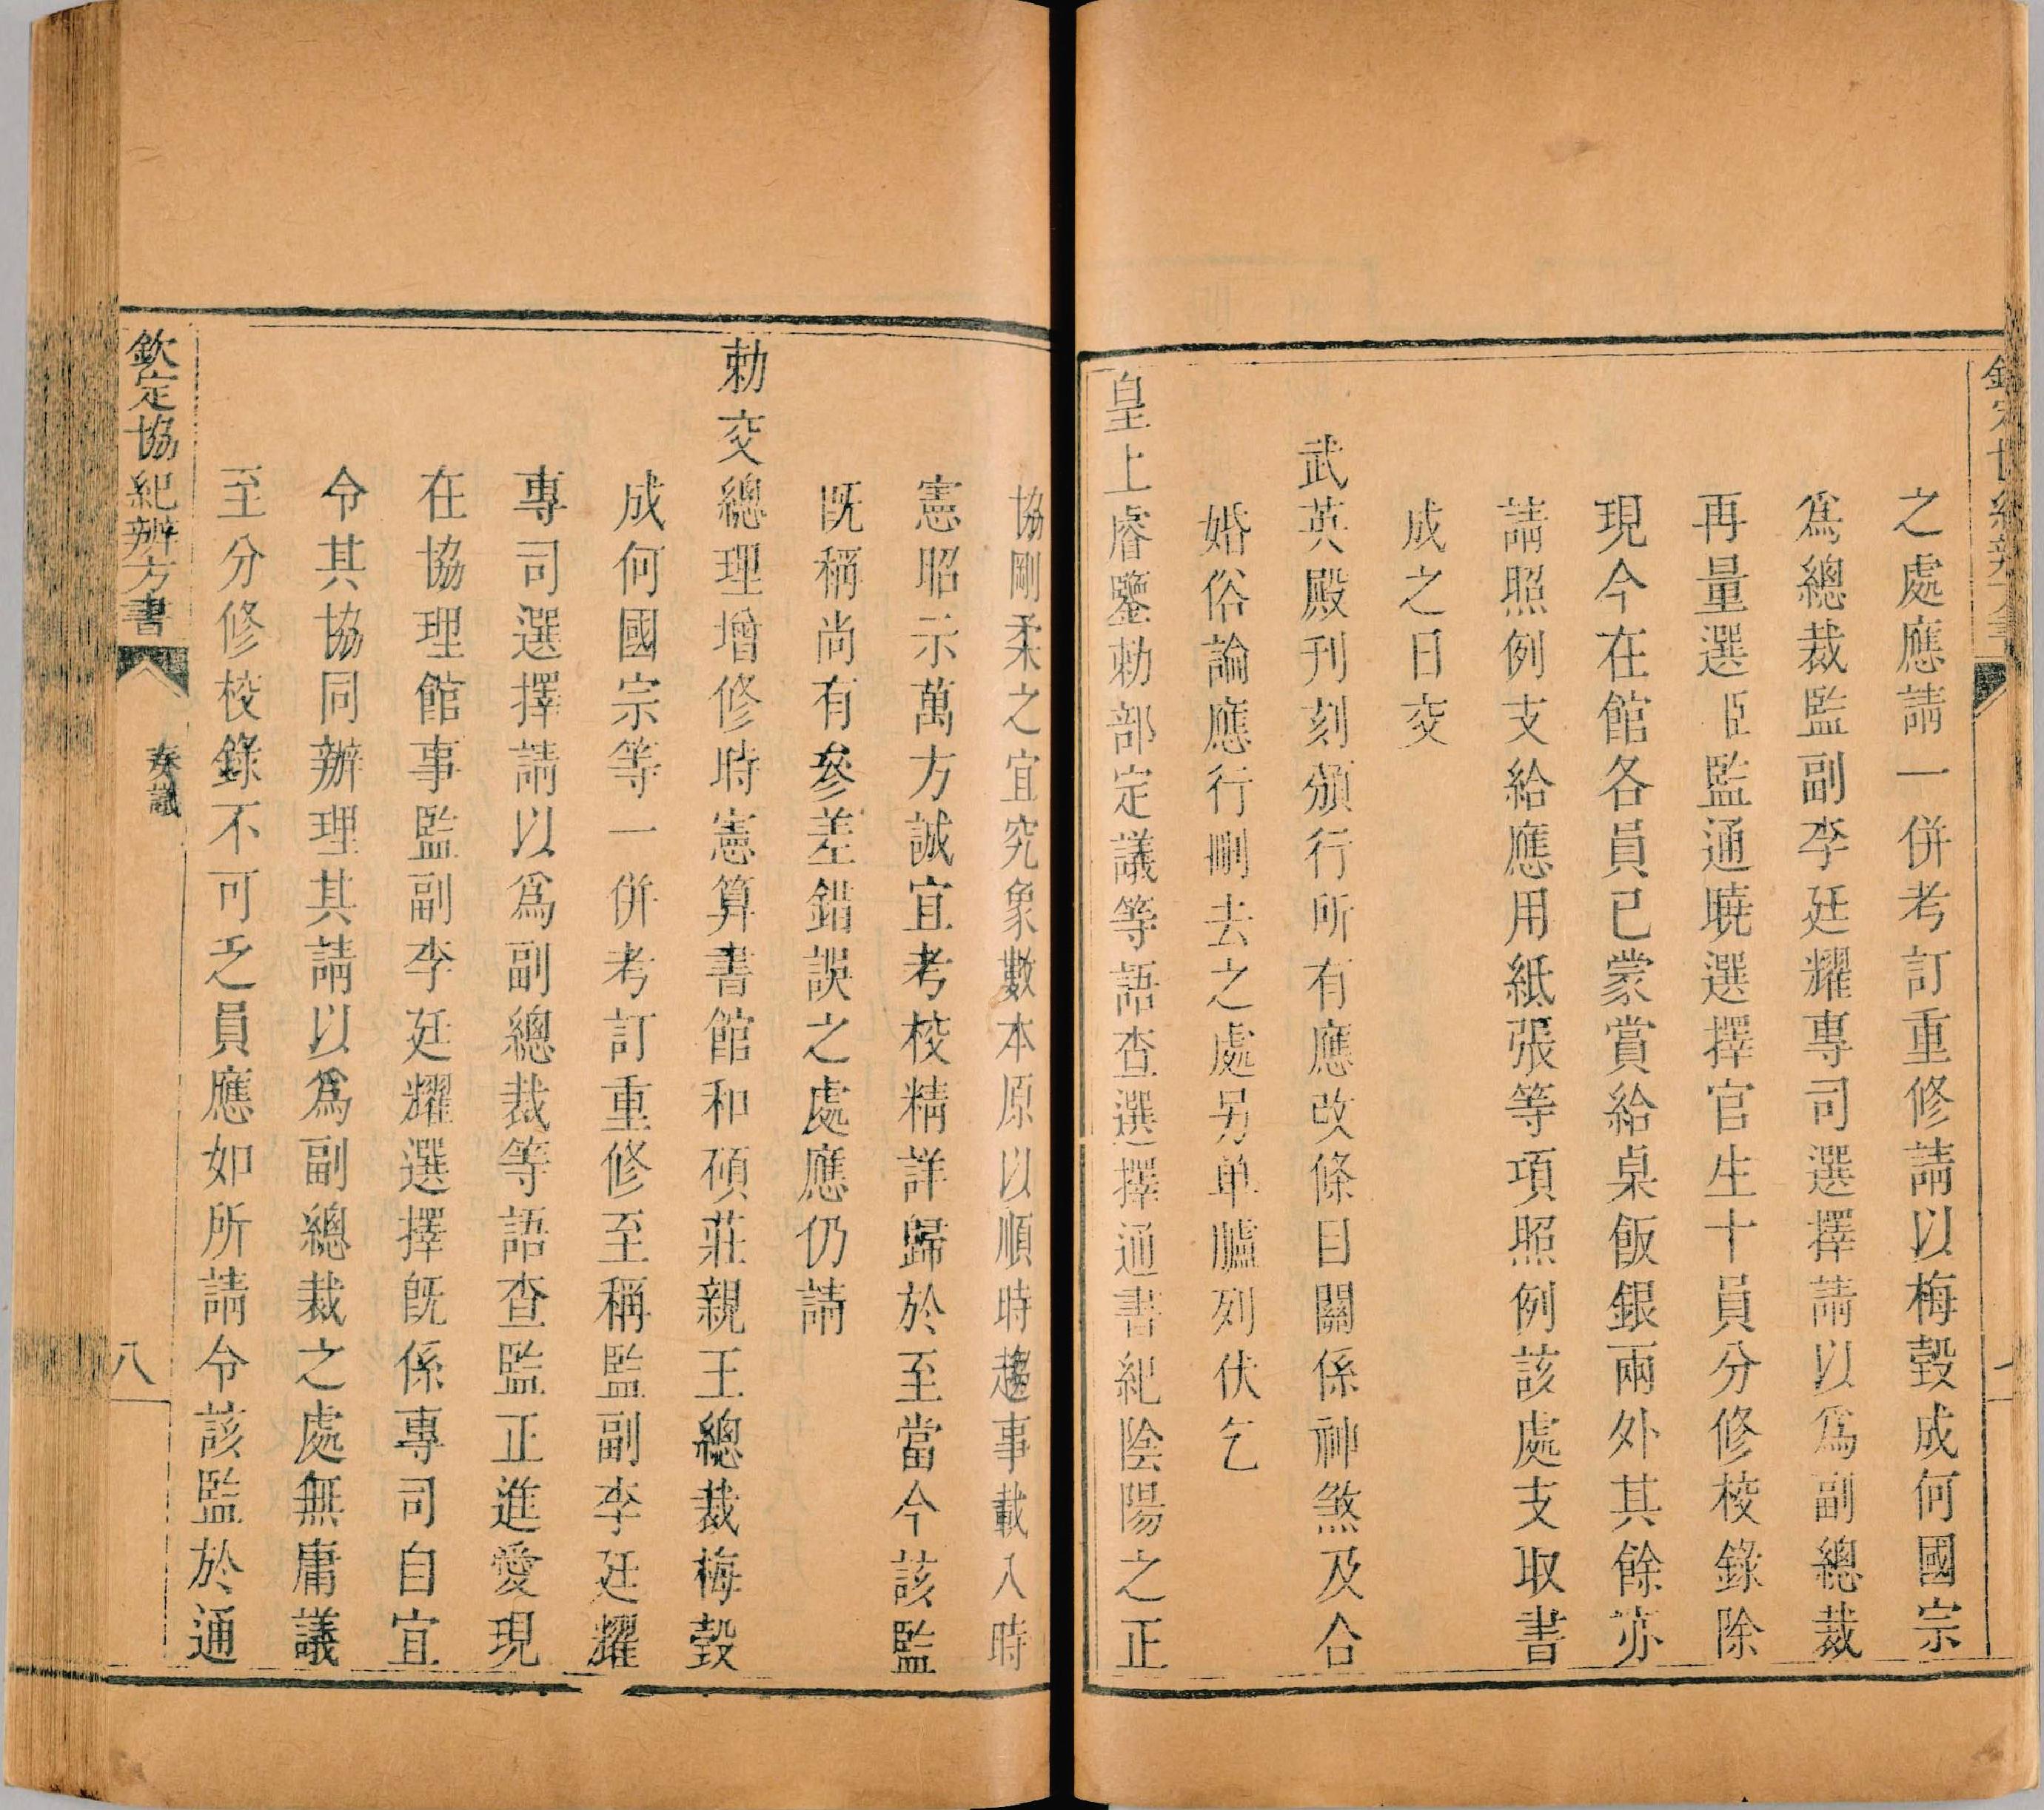 之處應請一併考訂重修請以梅瑴成何國宗
爲總裁監副李廷耀專司選擇請以爲副總裁
再量選臣監通曉選擇官生十員分修校錄除
現今在館各員已蒙賞給桌飯銀兩外其餘亦
請照例支給應用紙張等項照例該處支取書
成之日交
武英殿刊刻頒行所有應改條目關係神煞及合
婚俗論應行刪去之處另单臚列伏乞
皇上睿鑒勅部定議等語查選擇通書紀陰陽之正
協剛柔之宜究象數本原以順時趨事載入時
憲昭示萬方誠宜考校精詳歸於至當今該監
既稱尚有參差錯誤之處應仍請
勅交總理增修時憲算書館和碩莊親王總裁梅瑴
成何國宗等一併考訂重修至稱監副李廷耀
專司選擇請以爲副總裁等語查監正進愛現
在協理館事監副李廷耀選擇既係專司自宜
令其協同辦理其請以爲副總裁之處無庸議
至分修校錄不可乏員應如所請令該監於通
欽定協紀辨方書
奏議
八